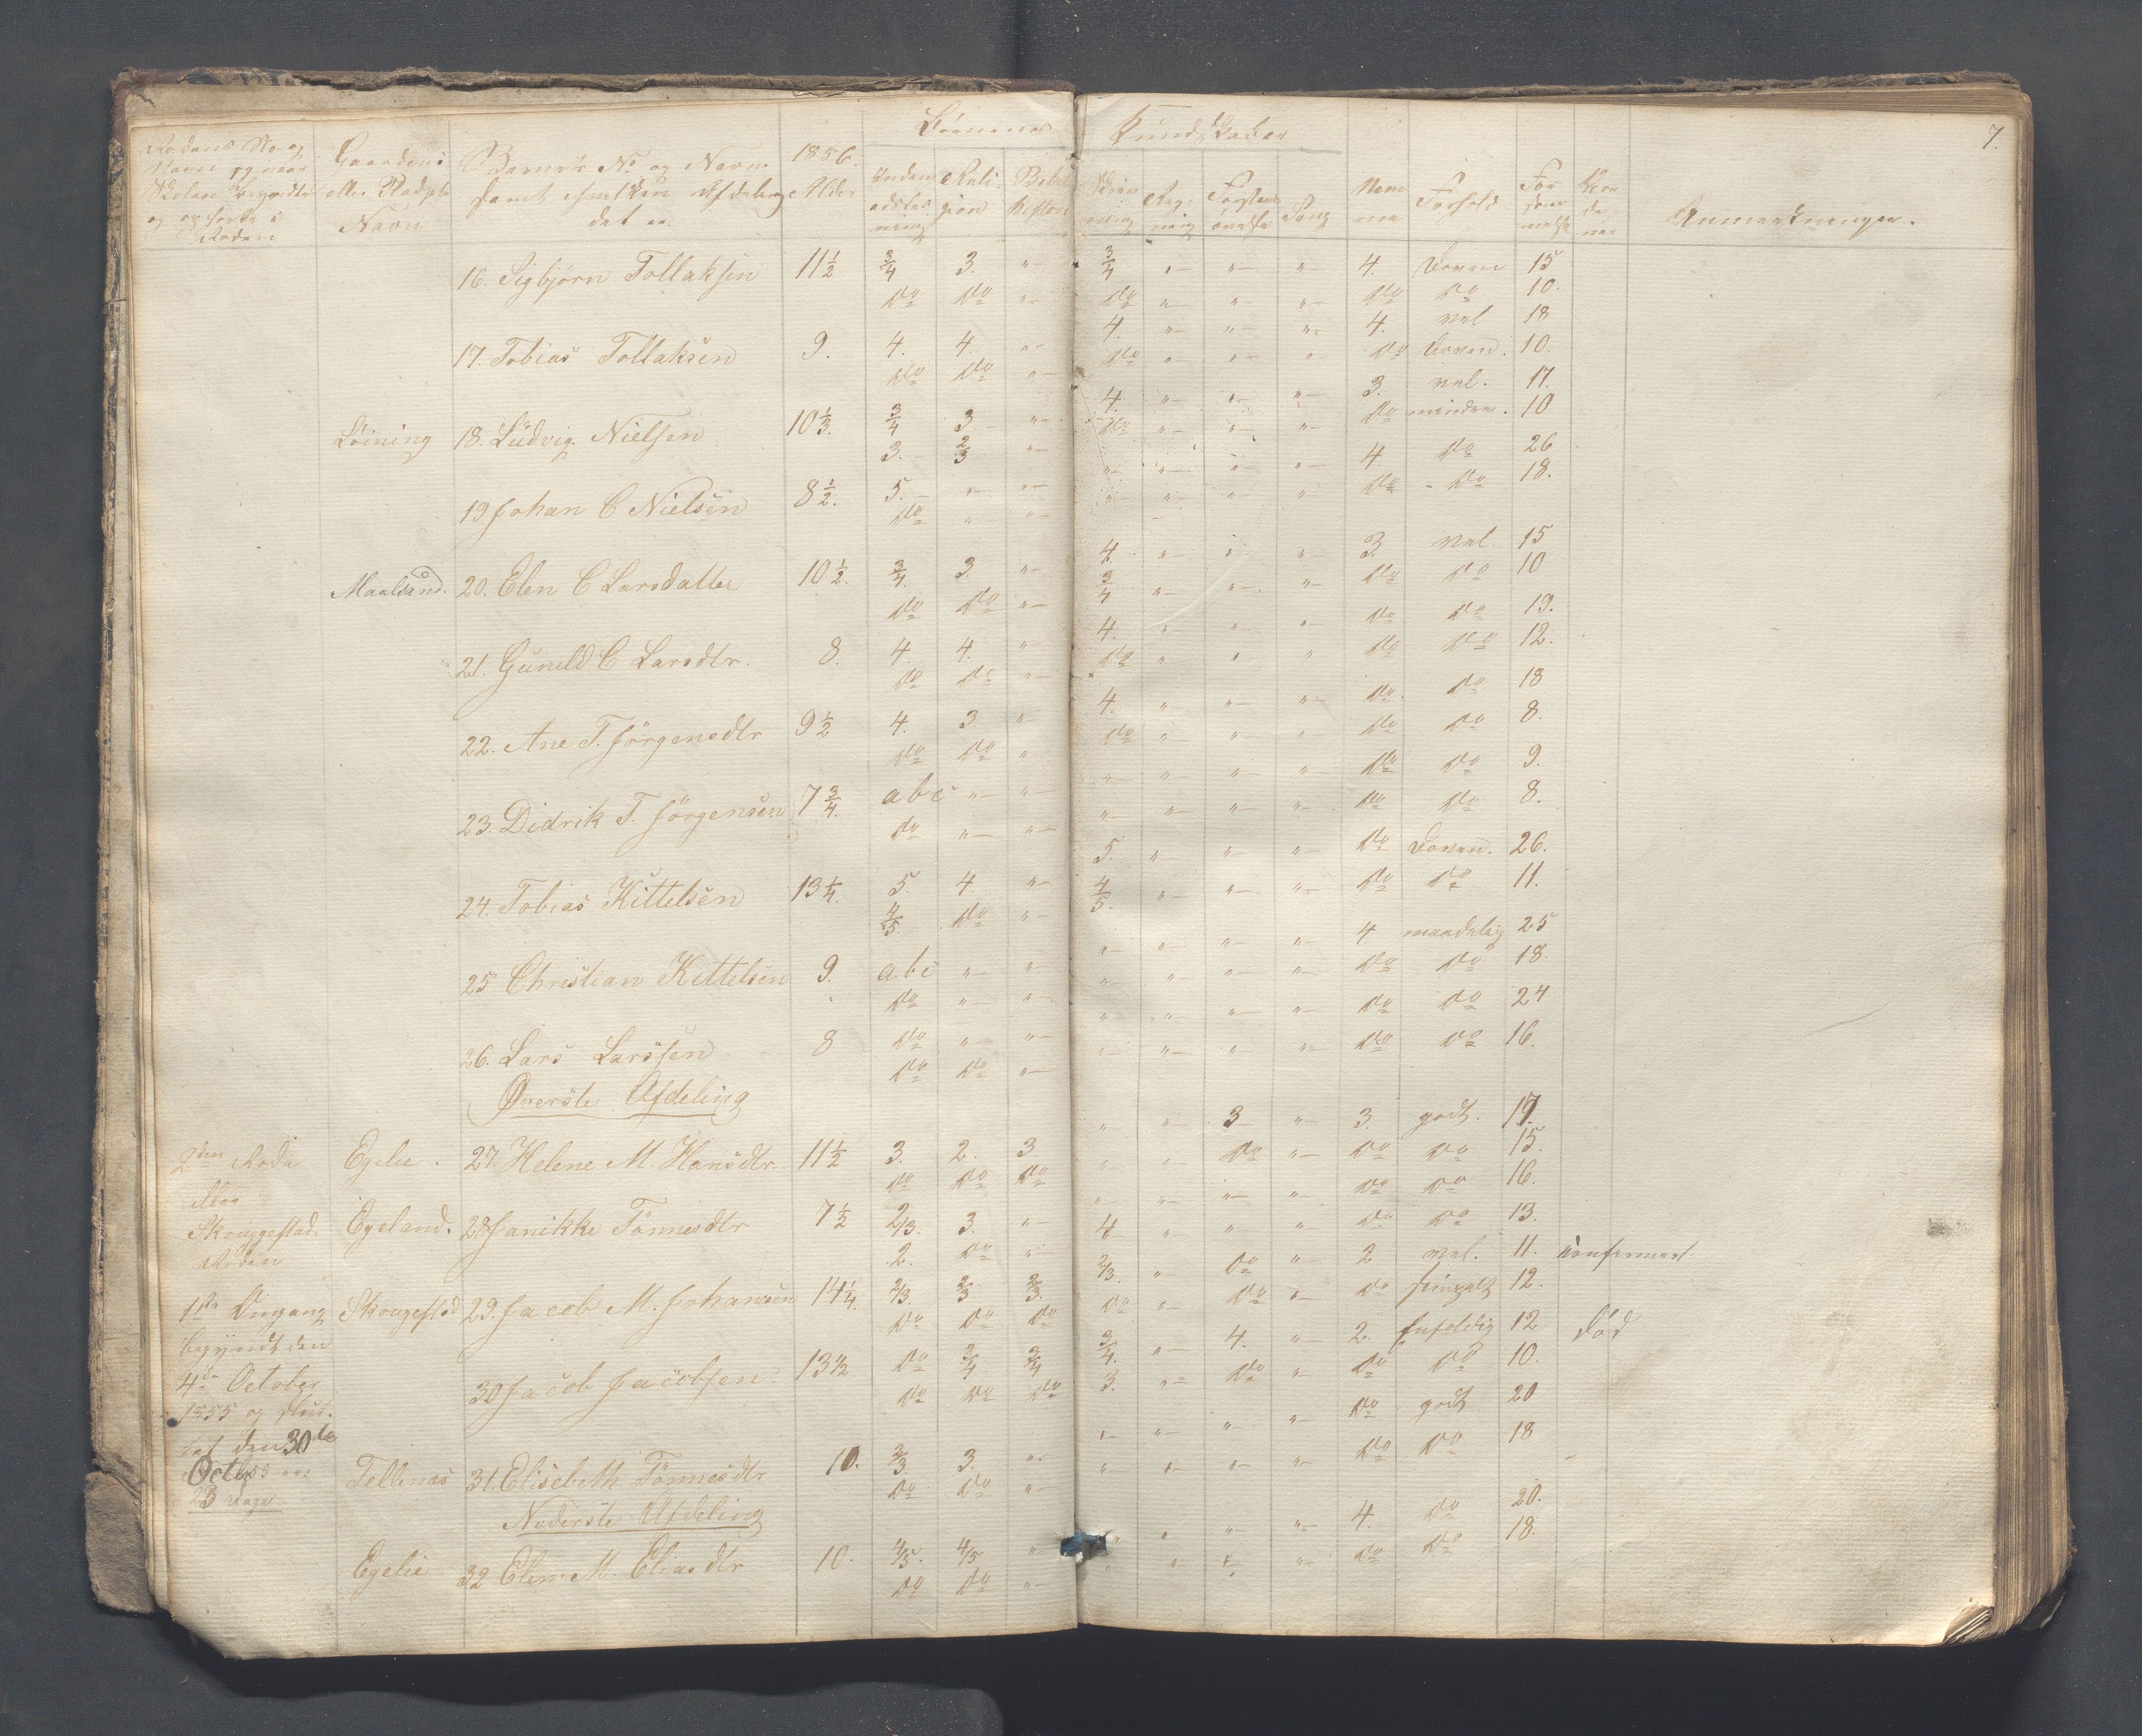 7.
Børnenes Kundskaber
Rodens No og Navn og naar Skolen begyndte og ophørte i Roden
Gaardens eller Pladsens Navn
Barnets No og Navn samt hvilken Afdeling det er
1856. Alder
Indenadslæsning Religion Bibelhistorie Skrivning Regning Sang Nemme Forhold Forsømmelse Anmærkninger.
16. Sigbjørn Tollaksen 11 1/2 3/4 3. "- 3/4 "- "- "- 4. doven 15
do do "- do "- "- "- do do 10.
17. Tobias Tollaksen 9. 4. 4. "- 4. "- "- "- 4. vel 18
do do "- do "- "- " do doven. 10.
Løining 18. Ludvig Nielsen 10 1/3. 3/4 3 "- 4. "- "- "- 3. vel. 17.
3. 2/3 "- do "- "- "- do mindre. 10
19 Johan C Nielsen 8 1/2. 5. "- "- "- "- "- "- 4. do 26
do "- "- "- "- "- " do do 18.
Maalsund. 20. Elen C Larsdatter 10 1/2. 3/4. 3. "- 4. "- "- "- 3. vel. 15
do do "- 3/4 "- "- "- do do 10
21. Gunild C Larsdtr. 8. 4. 4. " 4. "- "- "- do do 19.
do do "- do " " " do do 12.
22. Ane T. Jörgensdtr 9 1/2 4. 3. "- 4. "- "- "- do do 18
do do " do "- "- "- do do 8.
23. Didrik T. Jörgensen 7 3/4. abc "- "- "- "- "- "- do do 9.
do "- "- "- "- "- "- do do 8.
24. Tobias Kittelsen 13 1/4. 5. 4 "- 5. "- "- "- do doven. 26.
4/5. do "- 4/5. "- "- "- do do 11.
25 Christian Kittelsen 9. abc "- "- "- "- "- "- 4 maadelig 25
do "- "- "- "- "- "- do do 18.
26. Lars Larssen 8 do "- "- "- "- "- "- do do 24
do do "- "- "- "- "- do do 16.
Øverste Afdeling
2den Rode Egelie. 27. Helene M. Hansdtr. 11 1/2 3. 2. 3 "- "- 3 "- 3. godt. 17.
do do do "- "- do "- do do 15.
Skouggestad. Roden
Egeland. 28 Janikke Tönnesdtr 7 1/2 2/3. 3. "- "- "- "- "- do do 16.
2. do "- 4 "- "- "- do do 13.
1ste Omgang begyndt den 4de October 1855 og sluttet den 30de Octbr 55
23 Dage
Skougestad 29. Jacob M. Johansen 14 1/4. 2/3. 2/3 2/3. 2/3. "- do "- 2 vel. 11. Konfermert
do do do do "- do "- do 12.
30 Jacob Jacobsen 13 1/2 do 3/4 3/4 3/4. "- 4. "- 2. Enfoldig 12 død
do do do 3. "- do "- do do 10.
Tellenæs 31. Elisebeth Tönnesdtr 10. 2/3. 3. "- "- "- "- "- do godt 20
do do "- "- "- "- "- do do 18
Nederste Afdeling
Egelie 32 Elen M. Eliasdtr 10. 4/5. 4/5 " " " "- "- 4. do 20.
do do "- " "- "- "- do do 18.